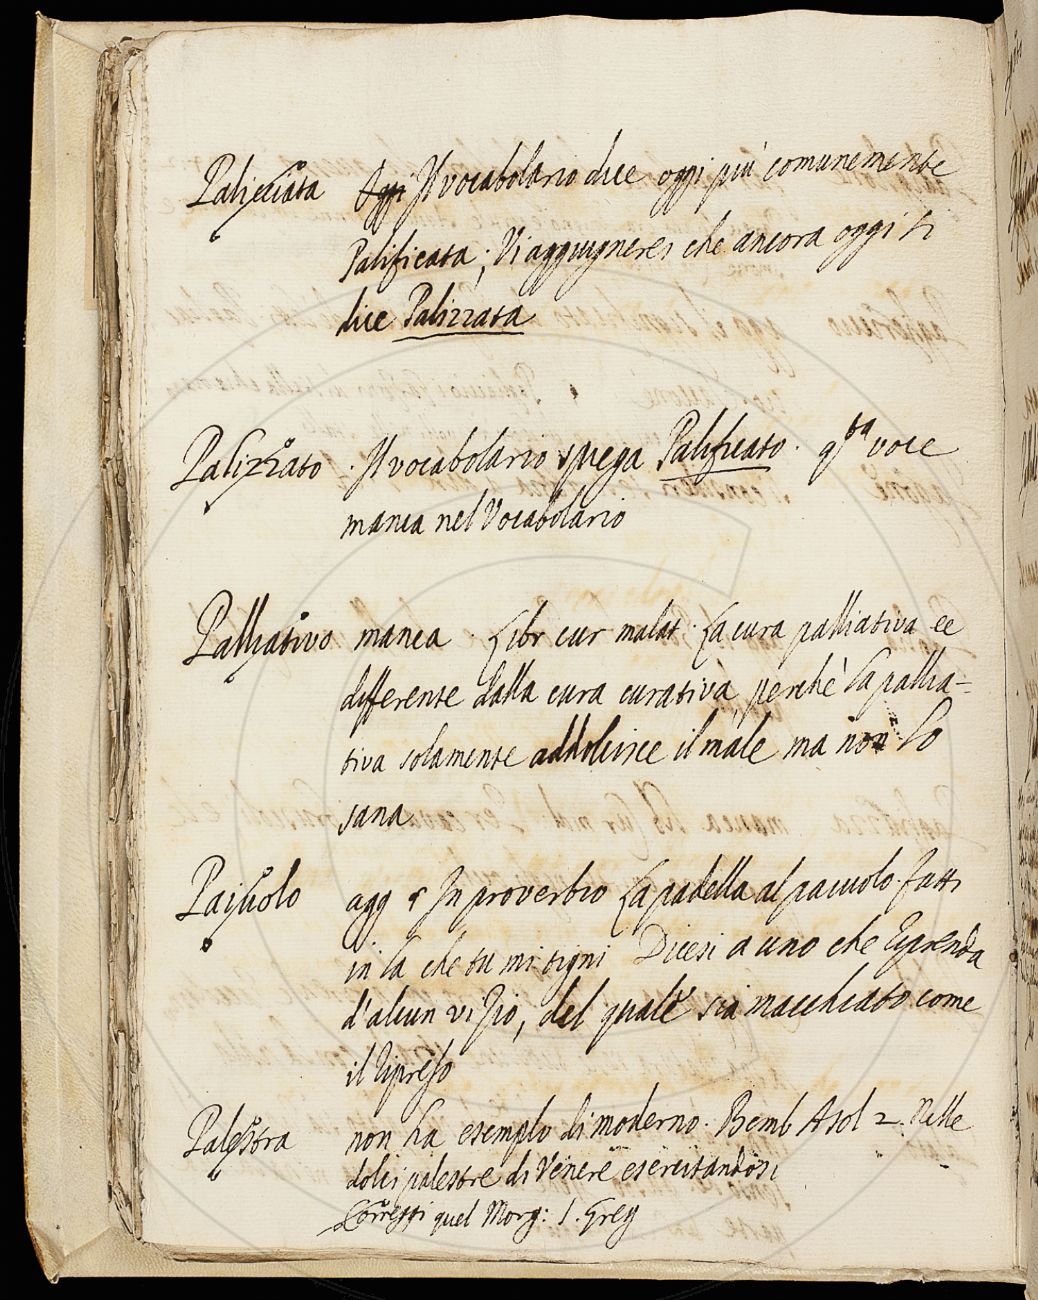 Paliccciata Oggi Il vocabolario dice oggi più comunemente
Palificata; Vi aggiugnerei che ancora oggi si
dice Palizzata
Palizzato. Il vocabolario spiega Palificato. q.ta voce
manca nel Vocabolario
Palliativo manca. Libr cur malat. La cura palliativa ee
differente dalla cura curativa, perchè la pallia=
tiva solamente addolcisce il male ma non lo
sana
Paiuolo agg In proverbio La padella al paiuolo fatti
in là che tu mi tigni Dicesi a uno che riprenda
d'alcun vizio, del quale sia macchiato come
il ripreso
Palestra non ha esemplo di moderno. Bemb Asol 2. Nelle
dolci palestre di Venere esercitandosi
Correggi quel Morg: S. Greg